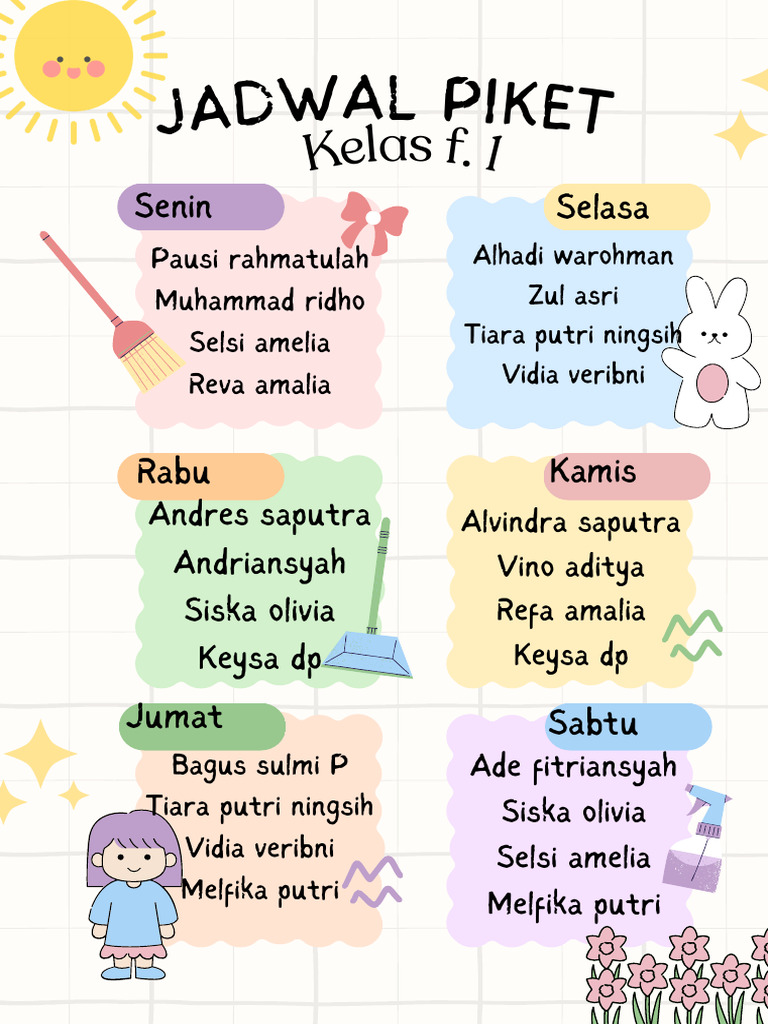 JADWAL PIKET
Kelas f. 1
Senin
Pausi rahmatulah
Muhammad ridho
Selsi amelia
Reva amalia
Selasa
Alhadi warohman
Zul asri
Tiara putri ningsih
Vidia veribni
Rabu
Andres saputra
Andriansyah
Siska olivia
Keysa dp
Kamis
Alvindra saputra
Vino aditya
Refa amalia
Keysa dp
Jumat
Bagus sulmi P
Tiara putri ningsih
Vidia veribni
Melfika putri
Sabtu
Ade fitriansyah
Siska olivia
Selsi amelia
Melfika putri